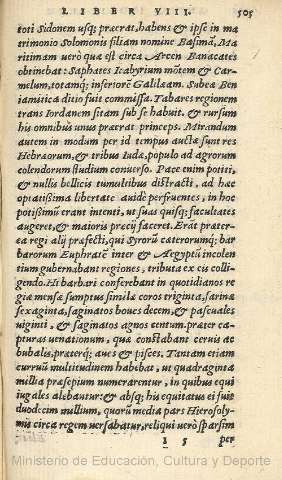 LIBER VIII. 505
toti Sidonem usq; præerat, habens & ipse in ma
trimonio Solomonis filiam nomine Basimã. Ma
ritimam uerò quæ est circa Arcen Banacates
obtinebat: Saphates Itabyrium mõtem & Car-
melum, totamq; inferiorẽ Galilæam. Subea Ben
iamitica ditio fuit commissa. Tabares regionem
trans Iordanem sitam sub se habuit. & rursum
his omnibus unus præerat princeps. Mirandum
autem in modum per id tempus auctæ sunt res
Hebræorum, & tribus Iuda, populo ad agrorum
colendorum studium conuerso. Pace enim potiti,
& nullis bellicis tumultibus distracti, ad hæc
optatissima libertate auide perfruentes, in hoc
potissimũ erant intenti, ut suas quisq; facultates
augeret, & maioris precij faceret. Erãt præter-
ea regi alij præfecti, qui Syrorũ cæterorumq; bar
barorum Euphratẽ inter & Aegyptũ incolen
tium gubernabant regiones, tributa ex eis colli-
gendo. Hi barbari conferebant in quotidianos re
giæ mensæ sumptus similæ coros triginta, farinæ
sexaginta, saginatos boues decem, & pascuales
uiginti, & saginatos agnos centum. præter ca-
pturas uenationum, quæ constabant ceruis ac
bubalis, præterq; aues & pisces. Tantam etiam
curruũ multitudinem habebat, ut quadraginta
millia præsepium numerarentur, in quibus equi
iugales alebantur: & absq; his equitatus ei fuit
duodecim millium, quorũ media pars Hierosoly-
mis circa regem uersabatur, reliqui uerò sparsim
l 5 per
Ministerio de Educación, Cultura y Deporte